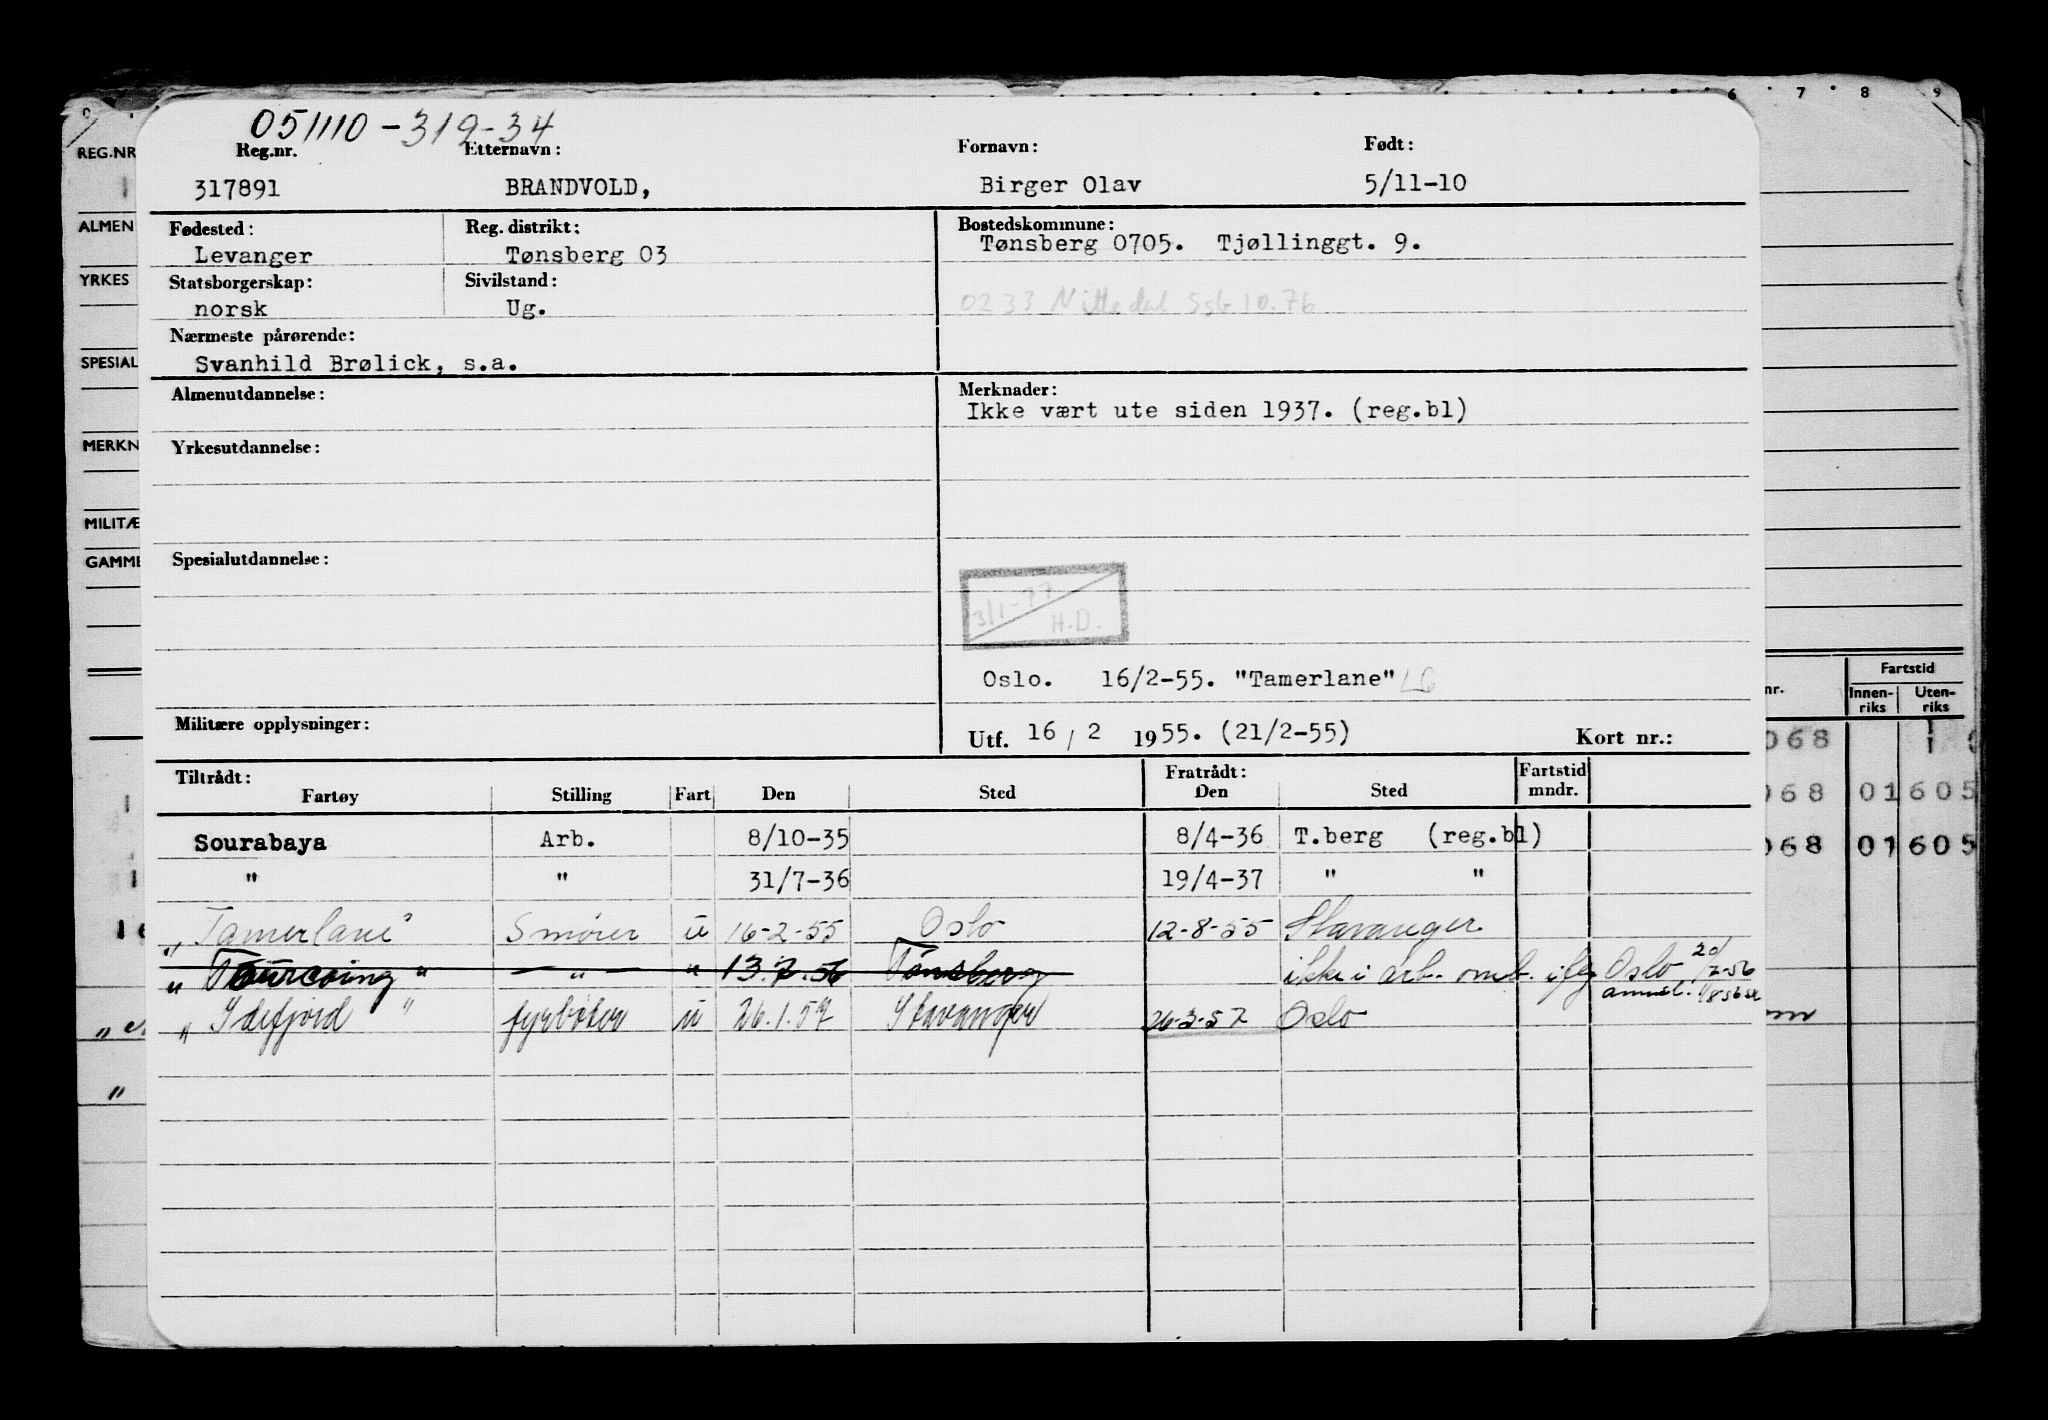 6 7 8 9
051110-319-34
REG.NR
Reg.nr. Etternavn: Fornavn: Født:
317891 BRANDVOLD, Birger Olav 5/11-10
ALMEN
Fødested: Reg. distrikt: Bostedskommune:
Levanger Tønsberg 03 Tønsberg 0705. Tjøllinggt. 9.
YRKES
Statsborgerskap: Sivilstand:
norsk Ug. 0233 Nittedal Ssb 10.76
Nærmeste pårørende:
SPESIAL
Svanhild Brølick, s.a.
Almenutdannelse: Merknader:
Ikke vært ute siden 1937. (reg.bl)
MERKN
Yrkesutdannelse:
MILITÆ
GAMME
Spesialutdannelse:
3/1-77
H.D.
Oslo. 16/2-55. "Tamerlane"
Fartstid
nr. Innen-riks Uten-riks
Militære opplysninger: Utf. 16/2 1955. (21/2-55) Kort nr.:
068
Tiltrådt: Fratrådt: Fartstid
Fartøy Stilling Fart Den Sted Den Sted mndr.
068 01 605
Sourabaya Arb. 8/10-35 8/4-36 T.berg (reg.bl)
068 01 605
" " 31/7-36 19/4-37 " "
"Tamerlane" Smører u 16-2-55 Oslo 12-8-55 Stavanger
"Tourcoing" " " 13.7.56 Tønsberg ikke i arb. omb. iflg Oslo 20/7-56
"Idefjord" fyrbøter u 26.1.57 Stavanger 26-3-57 Oslo
"